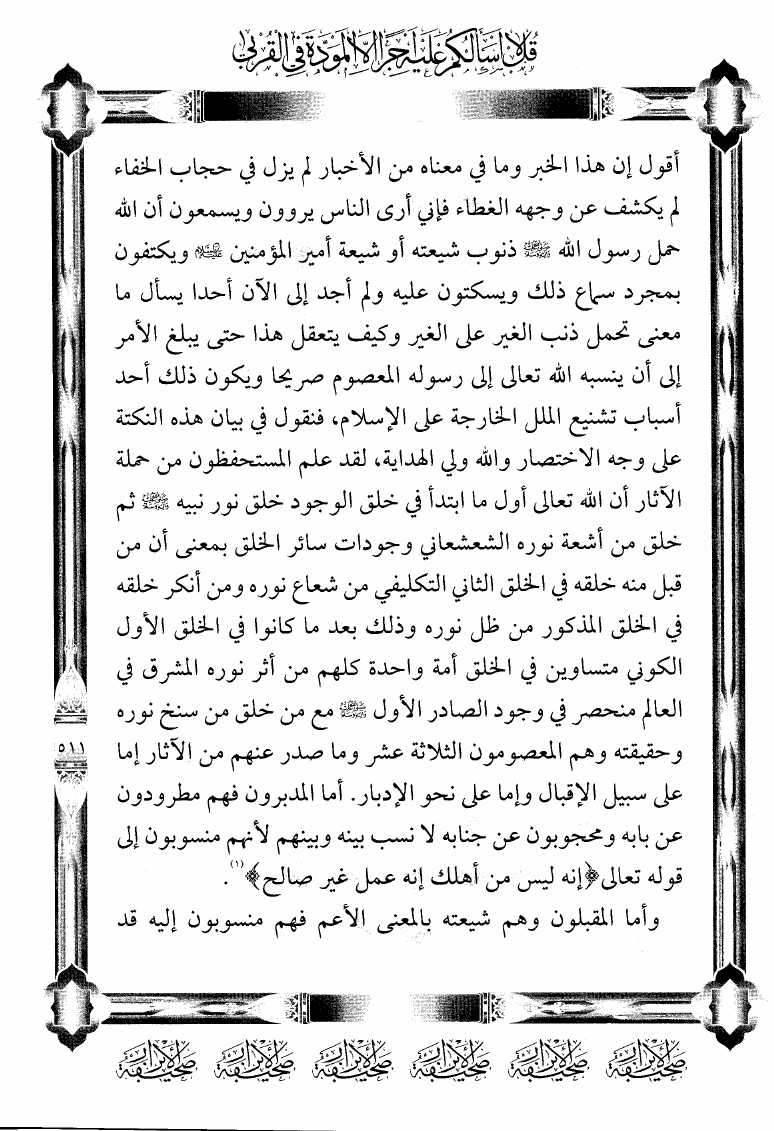 قل لا أسألكم عليه أجرا إلا المودة في القربى
أقول إن هذا الخبر وما في معناه من الأخبار لم يزل في حجاب الخفاء
لم يكشف عن وجهه الغطاء فإني أرى الناس يروون ويسمعون أن الله
حمل رسول الله ﷺ ذنوب شيعته أو شيعة أمير المؤمنين ويكتفون
بمجرد سماع ذلك ويسكتون عليه ولم أجد إلى الآن أحدا يسأل ما
معنى تحمل ذنب الغير على الغير وكيف يتعقل هذا حتى يبلغ الأمر
إلى أن ينسبه الله تعالى إلى رسوله المعصوم صريحا ويكون ذلك أحد
أسباب تشنيع الملل الخارجة على الإسلام، فنقول في بيان هذه النكتة
على وجه الاختصار والله ولي الهداية، لقد علم المستحفظون من حملة
الآثار أن الله تعالى أول ما ابتدأ في خلق الوجود خلق نور نبيه ﷺ ثم
خلق من أشعة نوره الشعشعاني وجودات سائر الخلق بمعنى أن من
قبل منه خلقه في الخلق الثاني التكليفي من شعاع نوره ومن أنكر خلقه
في الخلق المذكور من ظل نوره وذلك بعد ما كانوا في الخلق الأول
الكوني متساوين في الخلق أمة واحدة كلهم من أثر نوره المشرق في
العالم منحصر في وجود الصادر الأول ﷺ مع من خلق من سنخ نوره
وحقيقته وهم المعصومون الثلاثة عشر وما صدر عنهم من الآثار إما
٥١١
على سبيل الإقبال وإما على نحو الإدبار. أما المدبرون فهم مطرودون
عن بابه ومحجوبون عن جنابه لا نسب بينه وبينهم لأنهم منسوبون إلى
قوله تعالى ﴿إنه ليس من أهلك إنه عمل غير صالح﴾(١).
وأما المقبلون وهم شيعته بالمعنى الأعم فهم منسوبون إليه قد
صحيفة الأبرار صحيفة الأبرار صحيفة الأبرار صحيفة الأبرار صحيفة الأبرار صحيفة الأبرار